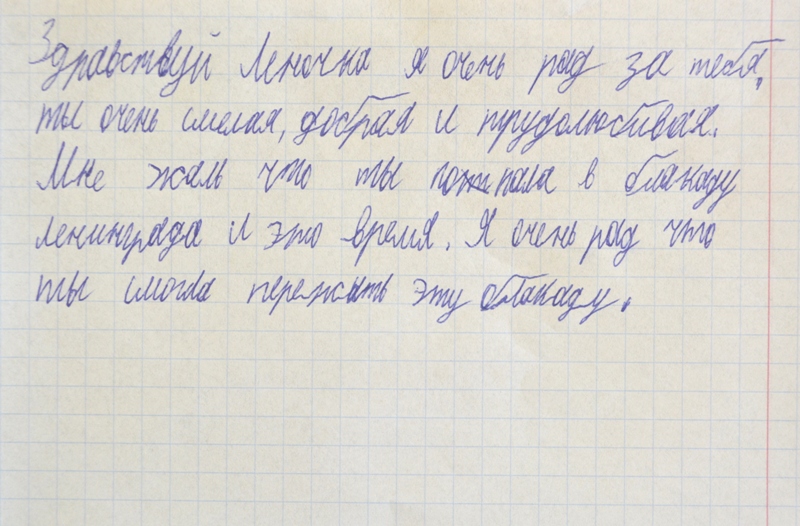 Здравствуй Леночка я очень рад за тебя,
ты очень смелая, добрая и трудолюбивая.
Мне жаль что ты попала в блакаду
ленинграда и это время. Я очень рад что
ты смогла пережить эту блакаду.